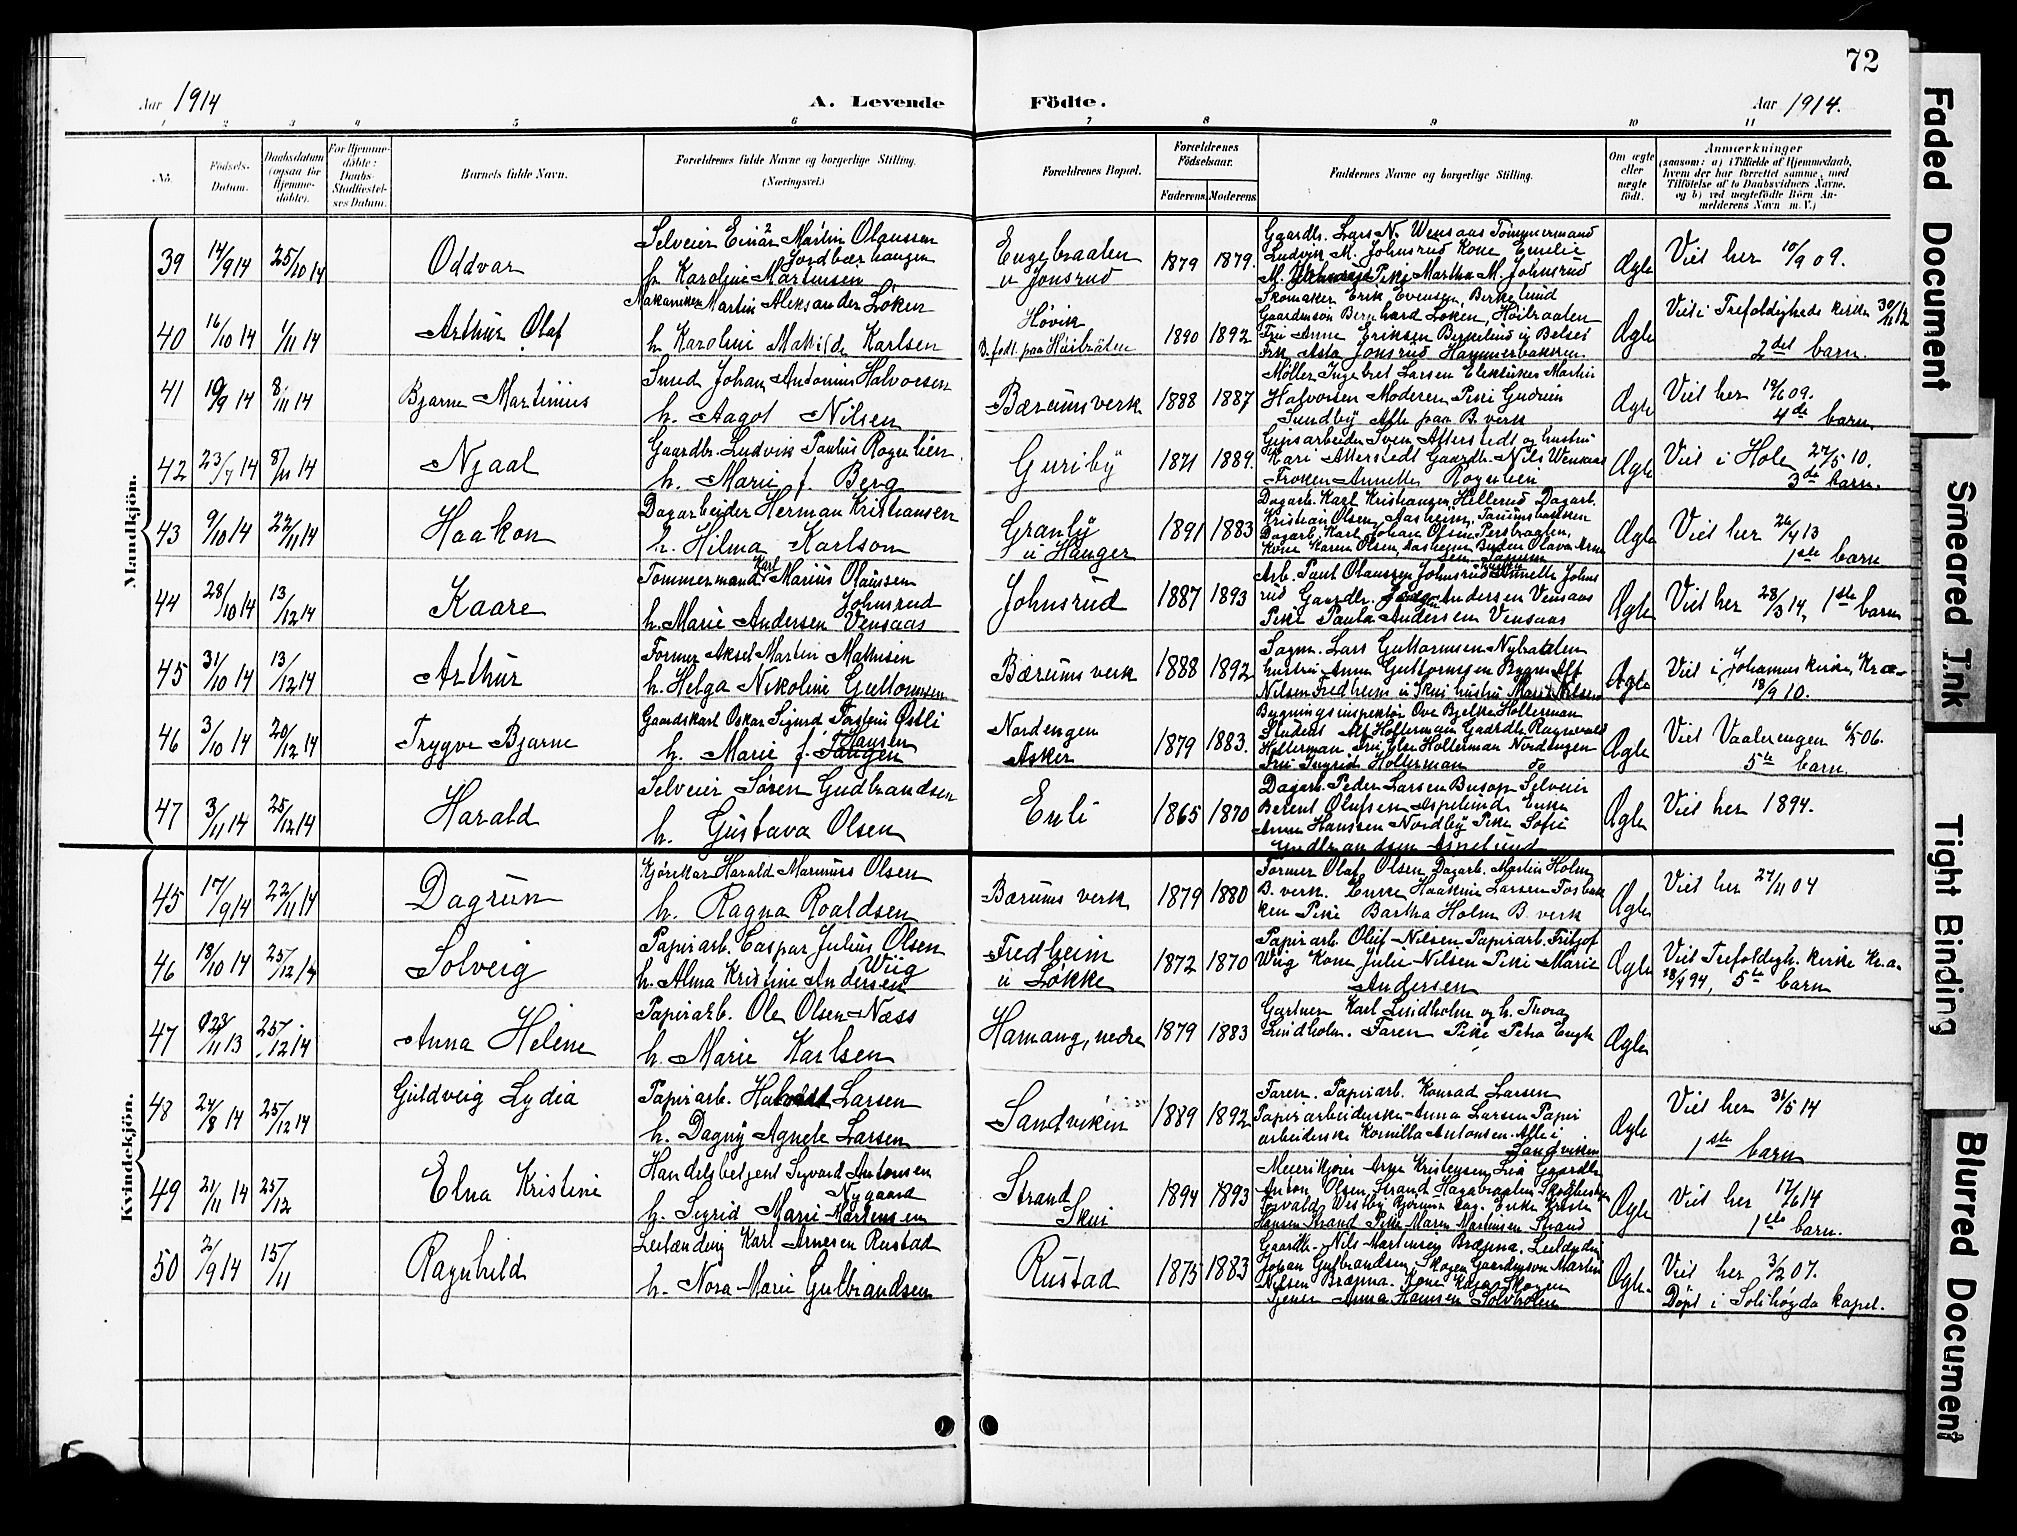 72
Aar 1914
A. Levende
Födte.
Aar 1914.
1 2 3 4 5 6 7 8 9 10 11
No.
Födsels-
Datum.
Daabsdatum
(ogsaa for
Hjemme-
döbte).
For Hjemme-
döbte:
Daabs-
Stadfæstel-
ses Datum.
Barnets fulde Navn.
Forældrenes fulde Navne og borgerlige Stilling.
(Næringsvei.)
Forældrenes Bopæl.
Forældrenes
Födselsaar.
Faderens. Moderens.
Faddernes Navne og borgerlige Stilling.
Om ægte
eller
uægte
født.
Anmærkninger
(saasom: a) i Tilfælde af Hjemmedaab,
hvem der har forrettet samme, med
Tilföielse af to Daabsvidners Navne,
og b) ved uægtefödte Börn An-
melderens Navn m. V.)
Mandkjön.
39 14/9 14 25/10 14
Oddvar
Selveier Einar Martin Olaussen
Jordbærhaugen
h. Karoline Martinsen
Engebraaten
u Jonsrud
1879 1879.
Gaardb. Lars N. Wensaas Tømmermand
Ludvik M. Johnsrud Kone Emilie
M. Johnsrud Pike Martha M. Johnsrud
Ægte
Viet her 10/9 09.
40 16/10 14 1/11 14
Arthur Olaf
Mekaniker Martin Aleksander Løken
h. Karoline Matilde Karlsen
Høvik
B. født paa Høibråten
1890 1892
Skomaker Erik Evensen, Berkelund
Gaardmson Bernhard Løken, Høibraaten
Fru Anne Eriksen Berkelund
Frk Asta Jonsrud Hammerbakken
Ægte
Viet i Trefoldigheds kirken 30/11 12
2det barn.
41 10/9 14 8/11 14
Bjarne Martinius
Smed Johan Antonius Halvorsen
h. Aagot Nilsen
Bærums verk
1888 1887
Møller Ingebret Larsen Elektriker Martin
Halvorsen Moderen Pike Gudrun
Sundby Alle paa B. verk
Ægte
Viet her 19/6 09.
4de barn
42 23/7 14 8/11 14
Njaal
Gaardbr. Ludvik Paulus Rognlien
h. Marie f. Berg
Guriby
1871 1889.
Gipsarbeider Sven Atterstedt og hustru
Kari Atterstedt Gaardb. Nils Wensaas
Frøken Annette Rognlien
Ægte
Viet i Hole 27/5 10.
3de barn.
43 9/10 14 22/11 14
Haakon
Dagarbeider Herman Kristiansen
h. Hilma Karlson
Granly
u Hauger
1891 1883
Dagarb. Karl Kristiansen Hellerud Dagarb.
Kristian Olsen, Aasheim, Tanumsbakken
Dagarb. Karl Johan Olsen Persbraaten,
Kone Karen Olsen, Aasheim
Ægte
Viet her 26/4 13
1ste barn
44 28/10 14 13/12 14
Kaare
Tømmermand Karl Marius Olaussen
Johnsrud
h. Marie Andersen Vensaas
Johnsrud
1887 1893
Arb. Paul Olaussen Johnsrud Annette Johns
rud Gaardb. Andersen Vensaas
Pike Paula Andersen Vensaas
Ægte
Viet her 28/3 14, 1ste barn
45 31/10 14 13/12 14
Arthur
Former Aksel Martin Mathisen
h. Helga Nikoline Guttormsen
Bærums verk
1888 1892
Sagm. Lars Guttormsen Nybraaten
hustru Anna Guttormsen Bygm. Alf
Nilsen Fredheim u Skui hustru Marie Nilsen
Ægte
Viet i Johannes kirke, Kra-
18/9 10.
46 3/10 14 20/12 14
Trygve Bjarne
Gaardskarl Oskar Sigurd Torstein Østli
Hansen
h. Marie f. Haugen
Nordengen
Asker
1879 1883.
Bygningsinspektør Ove Bjelke Holterman
Student Alf Holtermann Gaardb. Ragnvald
Holterman Fru Holterman Nordengen
Fru Ingrid Holterman do
Ægte
Viet Vaalerengen 6/5 06.
5te barn.
47 3/11 14 25/12 14
Harald
Selveier Søren Gudbrandsen
h. Gustava Olsen
Enli
1865 1870
Dagarb. Peder Larsen Busop Selveier
Berent Olufsen Aspelund Enke
Anne Hansen Nordby Pike Sofie
Gudbrandsen Aspelund
Ægte
Viet her 1894.
Kvindekjön.
45 17/9 14 22/11 14
Dagrun
Kjørekar Harald Marinius Olsen
h. Ragna Roaldsen
Bærums verk
1879 1880
Former Olaf Olsen Dagarb. Martin Holm
B. verk. Enke Haakine Larsen Fosbak
ken Pike Bartha Holm B. verk
Ægte
Viet her 27/11 04
46 18/10 14 25/12 14
Solveig
Papirarb. Caspar Julius Olsen
Wiig
h. Alma Kristine Andersen
Fredheim
u Løkke
1872 1870
Papirarb. Oluf Nilsen Papirarb. Fritjof
Wiig Kone Julie Nilsen Pike Marie
Andersen
Ægte
Viet Trefoldigh. kirke Kr.a.
18/9 94, 5te barn
47 23/11 13 25/12 14
Anna Helene
Papirarb. Ole Olsen Næss
h. Marie Karlsen
Hamang, nedre
1879 1883
Gartner Karl Lindholm og h. Thora
Lindholm. Faren Pike Petra Engh
Ægte
48 24/8 14 25/12 14
Guldveig Lydia
Papirarb. Halvdat Larsen
h. Dagny Agnete Larsen
Sandviken
1889 1892
Faren. Papirarb. Konrad Larsen
Papirarbeiderske Anna Larsen Papir
arbeiderske Kornilla Antonsen. Alle i
Sandviken
Ægte
Viet her 31/5 14
1ste barn
49 21/11 14 25/12
Elna Kristine
Handelsbetjent Syvard Antonsen
Nygaard
h. Sigrid Marie Martensen
Strand
Skui
1894 1893
Meierikjører Arne Kristensen, Lia Gaardb.
Anton Olsen Strand
Hansen Strand Pike Maren Martinsen Strand
Ægte
Viet her 17/6 14
1ste barn.
50 2/9 14 15/11
Ragnhild
Leilænding Karl Arnesen Rustad
h. Nora Marie Gulbrandsen
Rustad
1875 1883
Gaardb. Nils Martinsen Bræpna. Leilænding
Johan Gulbrandsen, Skogen Gaardmson Martin
Nilsen Bræpna. Kone Kaja Skogen
Tjener Anna Hansen Solvholm
Ægte.
Viet her 3/2 07.
Døpt i Solihøgda kapel.
Faded Document
Smeared Ink
Tight Binding
Blurred Document